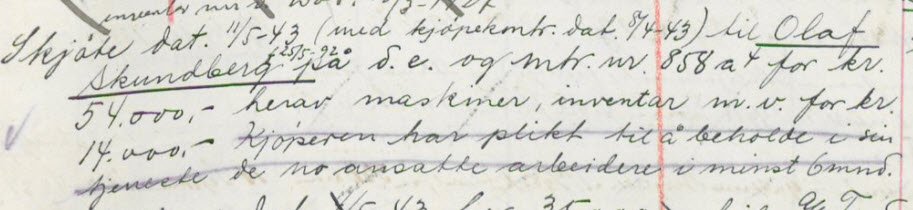 Skjøte dat. 11/5-43 (med kjøpekontr. dat. 8/4-43) til Olaf
Skundberg på d. e. og mtr. nr. 858 a4 for kr.
54.000,- herav maskiner, inventar m.v. for kr.
14.000,- Kjøperen har plikt til å beholde i sin
tjeneste de no ansatte arbeidere i minst 6 mnd.